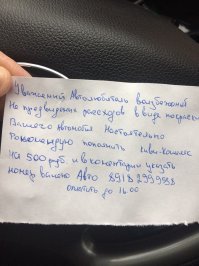 Уважаемый Автолюбитель во избежание
Не предвиденых рассходов в виде покраски
Вашего автомобиля Настоятельно
Рекомендую пополнить киви-кошелек
На 500 руб. и в коментарии указать
номер вашего Авто
оплатить до 16.00